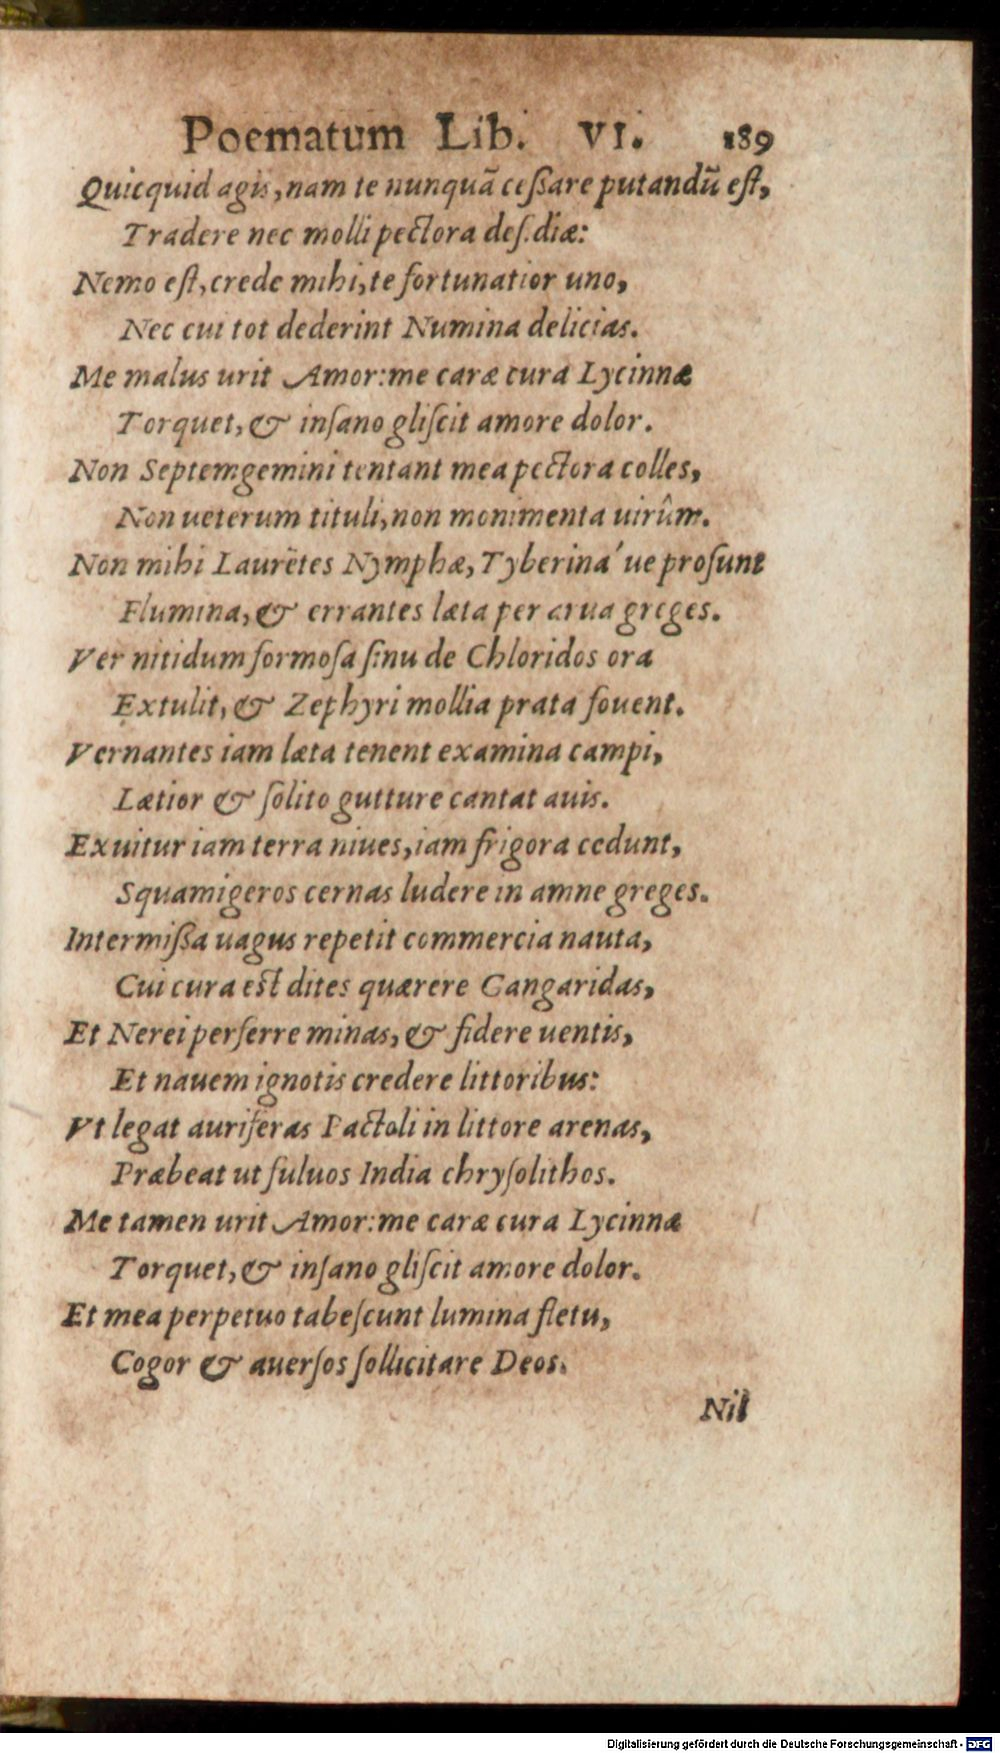 Poematum Lib. VI. 189
Quicquid agis, nam te nunquã ceſſare putandũ eſt,
Tradere nec molli pectora deſ.diæ:
Nemo eſt, crede mihi, te fortunatior uno,
Nec cui tot dederint Numina delicias.
Me malus urit Amor: me caræ cura Lycinnæ
Torquet, & inſano gliſcit amore dolor.
Non Septemgemini tentant mea pectora colles,
Non ueterum tituli, non monimenta uirûm.
Non mihi Laurẽtes Nymphæ, Tyberina´ue proſunt
Flumina, & errantes læta per arua greges.
Ver nitidum formoſa ſinu de Chloridos ora
Extulit, & Zephyri mollia prata fouent.
Vernantes iam læta tenent examina campi,
Lætior & ſolito gutture cantat auis.
Exuitur iam terra niues, iam frigora cedunt,
Squamigeros cernas ludere in amne greges.
Intermiſſa uagus repetit commercia nauta,
Cui cura eſt dites quærere Gangaridas,
Et Nerei perferre minas, & fidere uentis,
Et nauem ignotis credere littoribus:
Vt legat auriferas Pactoli in littore arenas,
Præbeat ut fuluos India chryſolithos.
Me tamen urit Amor: me caræ cura Lycinnæ
Torquet, & inſano gliſcit amore dolor.
Et mea perpetuo tabeſcunt lumina fletu,
Cogor & auerſos ſollicitare Deos.
Nil
Digitalisierung gefördert durch die Deutsche Forschungsgemeinschaft - DFG